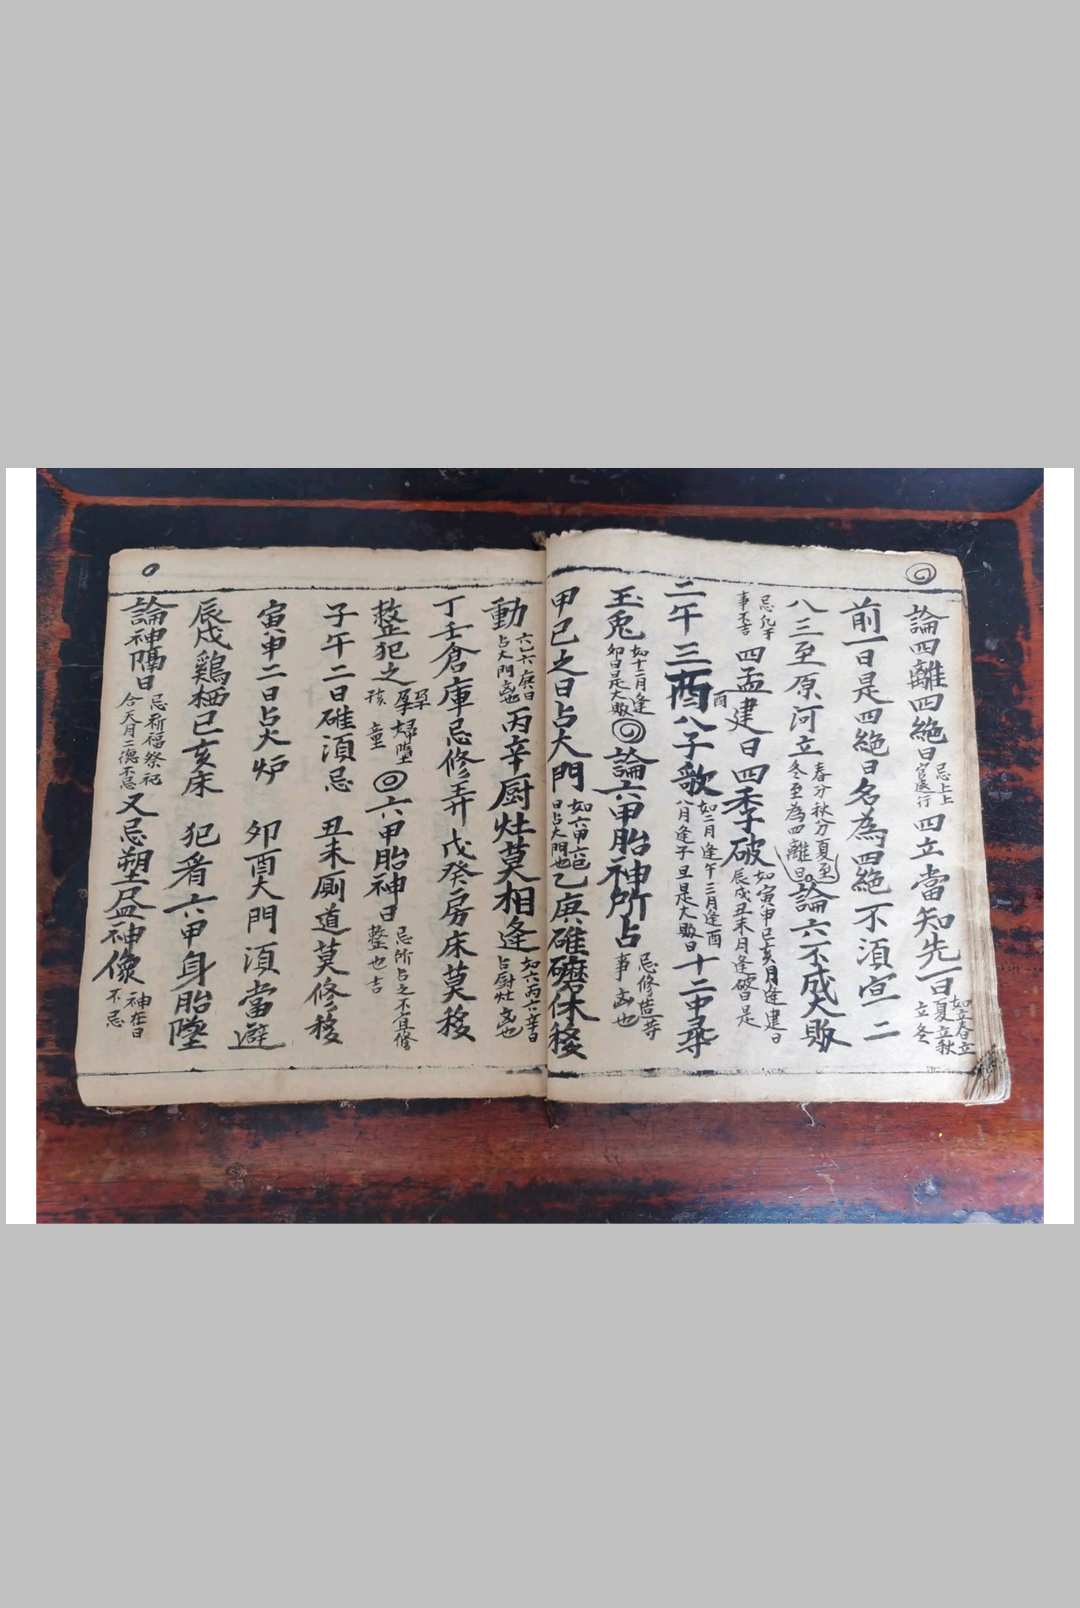 論四離四絶日忌上上官遠行四立當知先一日如立春立夏立秋立冬
前一日是四絶日名為四絶不須宣二
八三至原河立春分秋分夏至冬至為四離日論六不成大敗
忌凡干事不吉四孟建日四季破如寅申巳亥月逢建日辰戌丑未月逢破日是
二午三酉酉八子歌如二月逢午三月逢酉八月逢子日是大敗日十二中尋
玉兎如十二月逢卯日是大敗論六甲胎神所占忌修造等事凶也
甲己之日占大門如六甲六己日占大門也乙庚碓磨休移
動六乙六庚日占大門凶也丙辛厨灶莫相逢如六丙六辛日占厨灶凶也
丁壬倉庫忌修弄戊癸房床莫移
整犯之孕婦墮孩童六甲胎神日忌所占之不宜修整也吉
子午二日碓須忌 丑未厠道莫修移
寅申二日占火炉 卯酉大門須當避
辰戌鷄栖巳亥床 犯者六甲身胎墜
論神隔日忌祈福祭祀合天月二德不忌又忌塑画神像神在日不忌